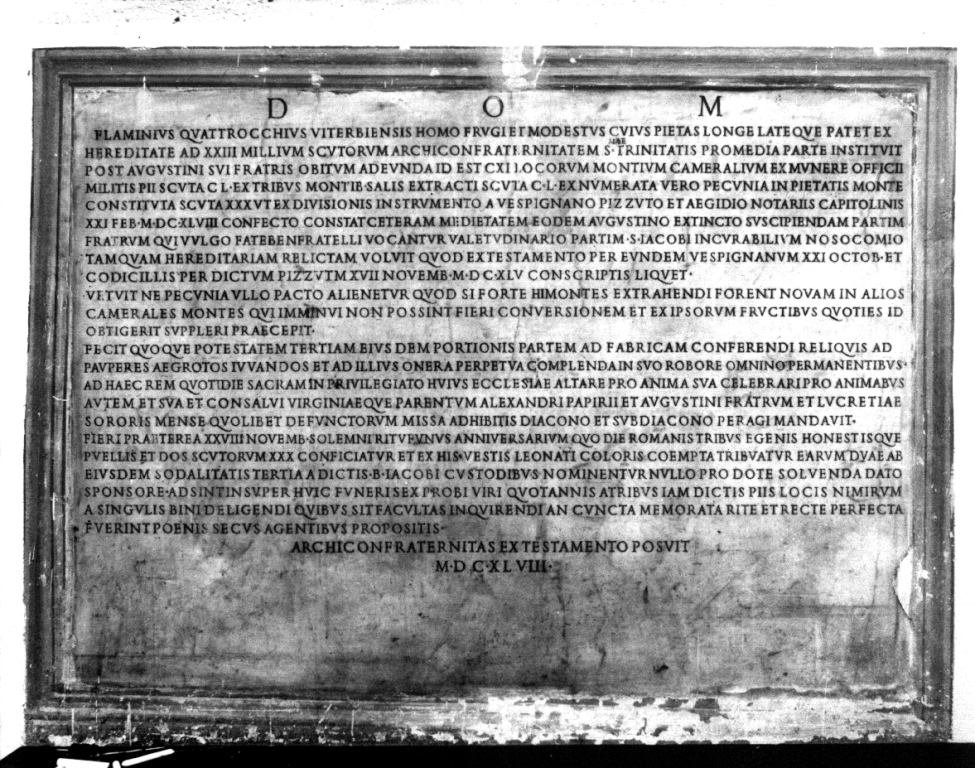 D O M
FLAMINIVS QVATTROCCHIVS VITERBIENSIS HOMO FRVGI ET MODESTVS CVIVS PIETAS LONGE LATEQVE PATET EX
HEREDITATE AD XXIII MILLIVM SCVTORVM ARCHICONFRATERNITATEM S· TRINITATIS PRO MEDIA PARTE INSTITVIT
POST AVGVSTINI SVI FRATRIS OBITVM ADEVNDA ID EST CXI LOCORVM MONTIVM CAMERALIVM EX MVNERE OFFICII
MILITIS PII SCVTA CL· EX TRIBVS MONTIB· SALIS EXTRACTI SCVTA C·L· EX NVMERATA VERO PECVNIA IN PIETATIS MONTE
CONSTITVTA SCVTA XXX VT EX DIVISIONIS INSTRVMENTO A VESPIGNANO PIZZVTO ET AEGIDIO NOTARIIS CAPITOLINIS
XXI FEB·M·DC·XLVIII CONFECTO CONSTAT CETERAM MEDIETATEM EODEM AVGVSTINO EXTINCTO SVSCIPIENDAM PARTIM
FRATRVM QVI VVLGO FATEBENFRATELLI VOCANTVR VALETVDINARIO PARTIM ·S· IACOBI INCVRABILIVM NOSOCOMIO
TAMQVAM HEREDITARIAM RELICTAM VOLVIT QVOD EX TESTAMENTO PER EVNDEM VESPIGNANVM XXI OCTOB· ET
CODICILLIS PER DICTVM PIZZVTM XVII NOVEMB·M·DC·XLV CONSCRIPTIS LIQVET·
VETVIT NE PECVNIA VLLO PACTO ALIENETVR QVOD SI FORTE HI MONTES EXTRAHENDI FORENT NOVAM IN ALIOS
CAMERALES MONTES QVI IMMINVI NON POSSINT FIERI CONVERSIONEM ET EX IPSORVM FRVCTIBVS QVOTIES ID
OBTIGERIT SVPPLERI PRAECEPIT·
FECIT QVOQVE POTESTATEM TERTIAM EIVSDEM PORTIONIS PARTEM AD FABRICAM CONFERENDI RELIQVIS AD
PAVPERES AEGROTOS IVVANDOS ET AD ILLIVS ONERA PERPETVA COMPLENDA IN SVO ROBORE OMNINO PERMANENTIBVS·
AD HAEC REM QVOTIDIE SACRAM IN PRIVILEGIATO HVIVS ECCLESIAE ALTARE PRO ANIMA SVA CELEBRARI PRO ANIMABVS
AVTEM ET SVA ET CONSALVI VIRGINIAEQVE PARENTVM ALEXANDRI PAPIRII ET AVGVSTINI FRATRVM ET LVCRETIAE
SORORIS MENSE QVOLIBET DEFVNCTORVM MISSA ADHIBITIS DIACONO ET SVBDIACONO PERAGI MANDAVIT·
FIERI PRAETEREA XXVIII NOVEMB· SOLEMNI RITV FVNVS ANNIVERSARIVM QVO DIE ROMANIS TRIBVS EGENIS HONESTISQVE
PVELLIS ET DOS SCVTORVM XXX CONFICIATVR ET EX HIS· VESTIS LEONATI COLORIS COEMPTA TRIBVATVR EARVM DVAE AB
EIVSDEM SODALITATIS TERTIA A DICTIS· B· IACOBI CVSTODIBVS NOMINENTVR NVLLO PRO DOTE SOLVENDA DATO
SPONSORE· ADSINT INSVPER HVIC FVNERI SEX PROBI VIRI QVOTANNIS A TRIBVS IAM DICTIS PIIS LOCIS NIMIRVM
A SINGVLIS BINI DELIGENDI QVIBVS SIT FACVLTAS INQVIRENDI AN CVNCTA MEMORATA RITE ET RECTE PERFECTA
FVERINT POENIS SECVS AGENTIBVS PROPOSITIS·
ARCHICONFRATERNITAS EX TESTAMENTO POSVIT
M·DC·XLVIII·